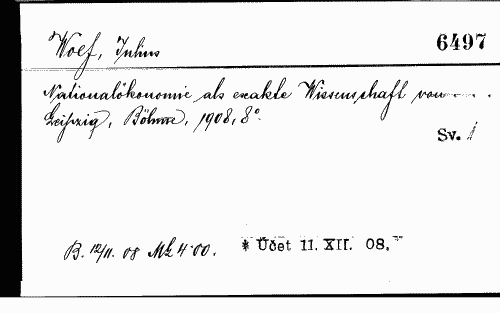 Wolf, Julius 6497
Nationalökonomie als exakte Wissenschaft von . . . .
Leipzig, Böhme, 1908, 8°.
Sv. 1
B. 12/11. 08 Mk 4·00. * Účet 11. XII. 08.